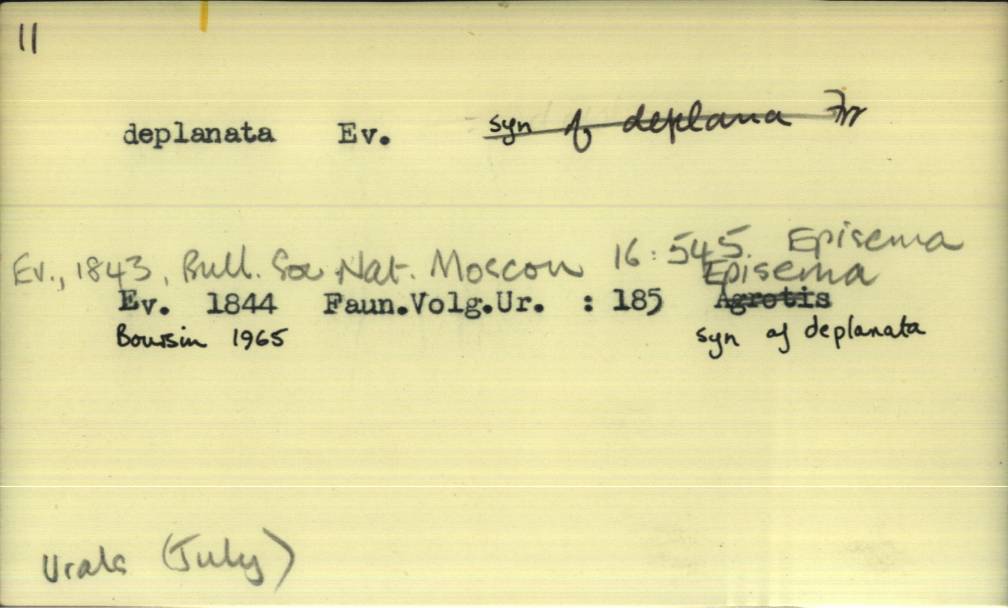 11
deplanata Ev. syn of deplana Frr
Ev., 1843, Bull. Soc Nat. Moscou 16:545. Episema
Episema
Ev. 1844 Faun.Volg.Ur. : 185 Agrotis
Boursin 1965 syn of deplanata
Urals (July)